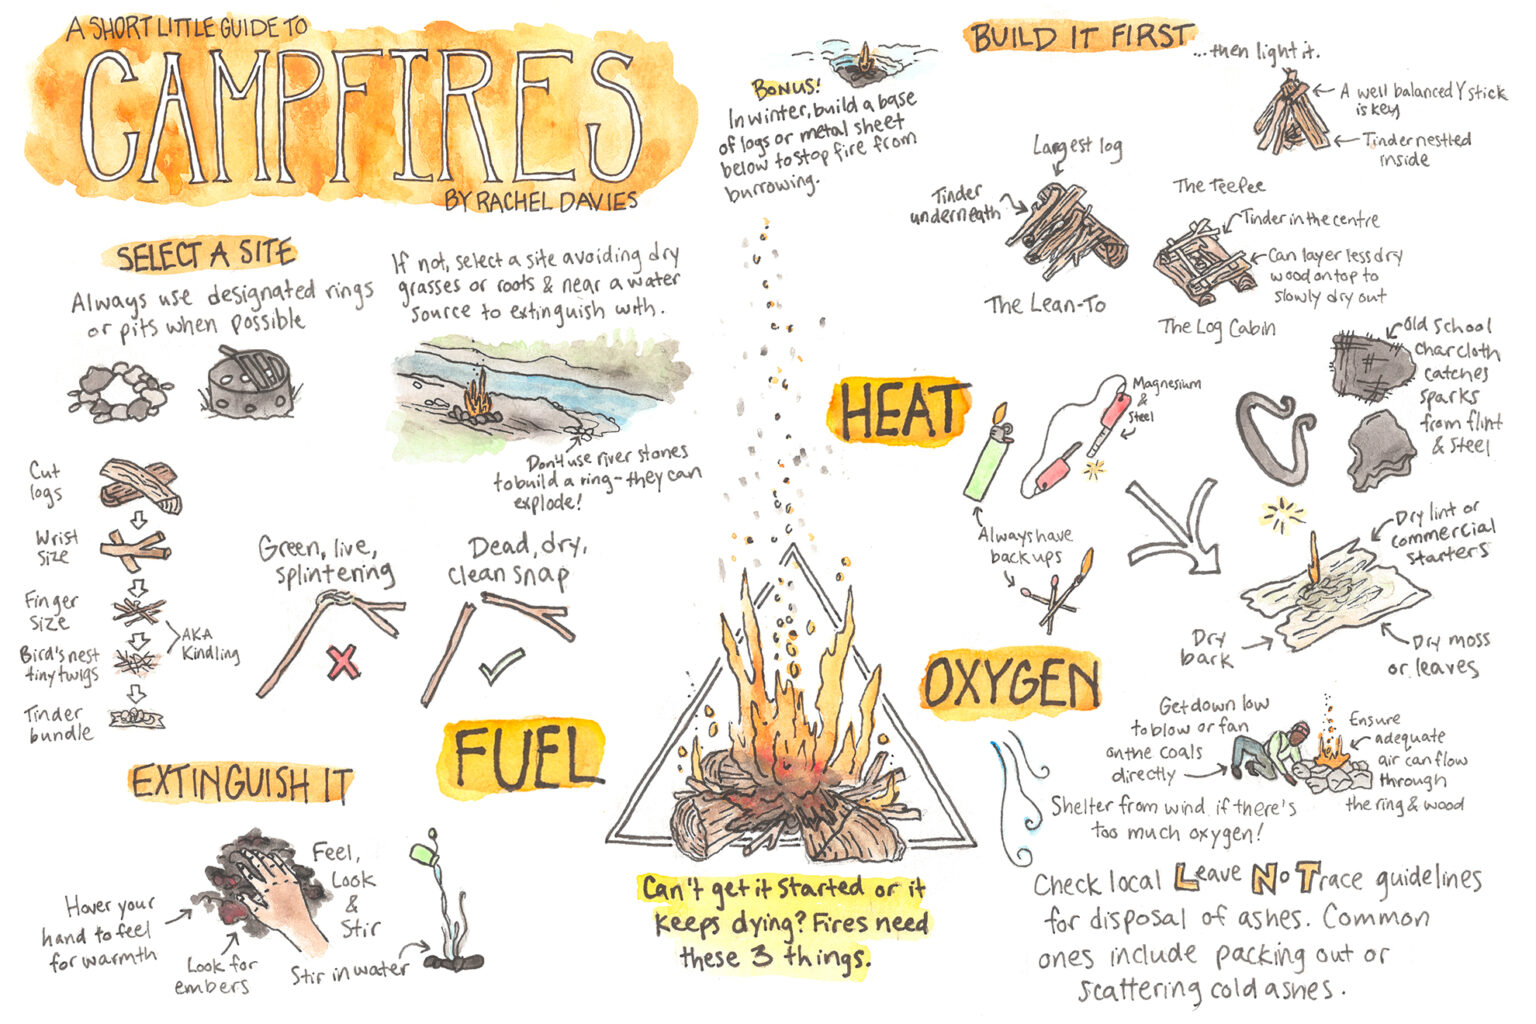 A SHORT LITTLE GUIDE TO
CAMPFIRES
BY RACHEL DAVIES
SELECT A SITE
Always use designated rings
or pits when possible
If not, select a site avoiding dry
grasses or roots & near a water
source to extinguish with.
Don't use river stones
to build a ring - they can
explode!
BONUS!
In winter, build a base
of logs or metal sheet
below to stop fire from
burrowing.
BUILD IT FIRST
...then light it.
A well balanced Y stick
is key
Tinder nestled
inside
The Teepee
Largest log
Tinder
underneath
The Lean-To
Tinder in the centre
Can layer less dry
wood on top to
slowly dry out
The Log Cabin
Cut
logs
Wrist
size
Finger
size
Bird's nest
tiny twigs
AKA
Kindling
Tinder
bundle
Green, live,
splintering
Dead, dry,
clean snap
FUEL
HEAT
Magnesium
&
Steel
Always have
back ups
Old School
charcloth
catches
sparks
from flint
& steel
Dry lint or
commercial
starters
Dry
bark
Dry moss
or leaves
OXYGEN
Get down low
to blow or fan
on the coals
directly
Ensure
adequate
air can flow
through
the ring & wood
Shelter from wind if there's
too much oxygen!
EXTINGUISH IT
Feel,
Look
&
Stir
Hover your
hand to feel
for warmth
Look for
embers
Stir in water
Can't get it started or it
keeps dying? Fires need
these 3 things.
Check local Leave No Trace guidelines
for disposal of ashes. Common
ones include packing out or
scattering cold ashes.